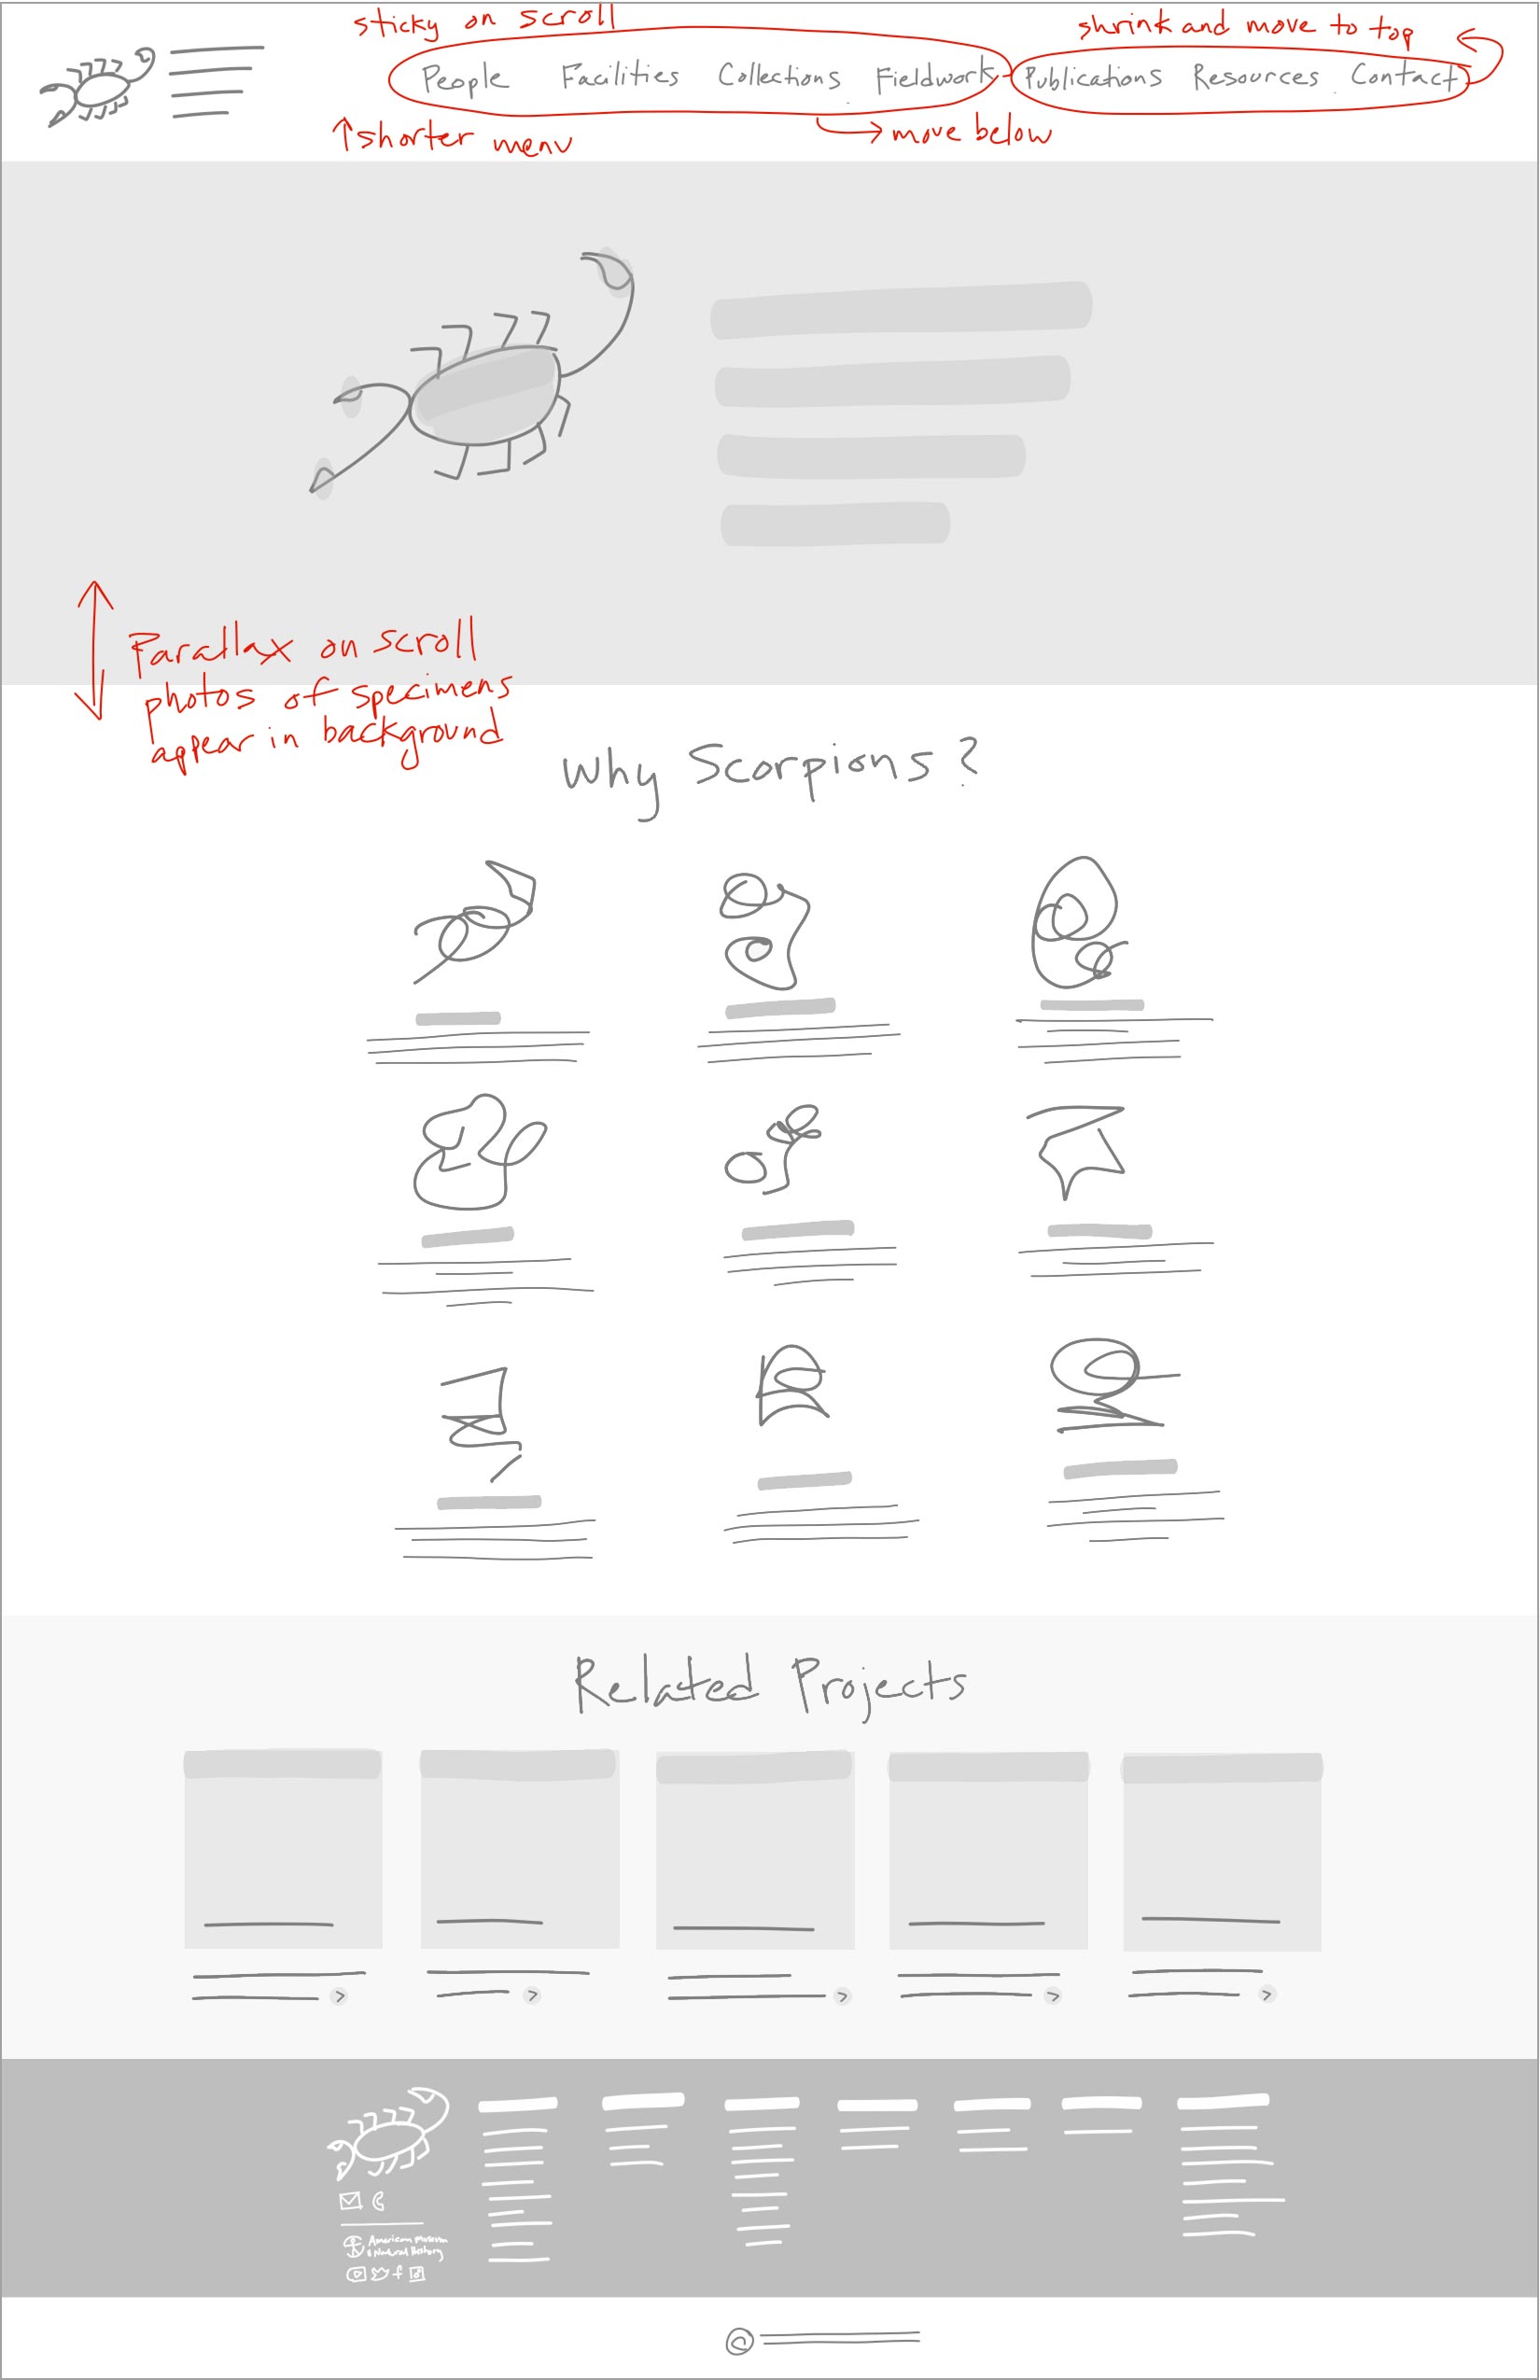 sticky on scroll
shrink and move to top
People Facilities Collections Fieldwork Publications Resources Contact
shorter menu
move below
Parallax on scroll
photos of specimens
appear in background
Why Scorpions?
Related Projects
American Museum
Natural History